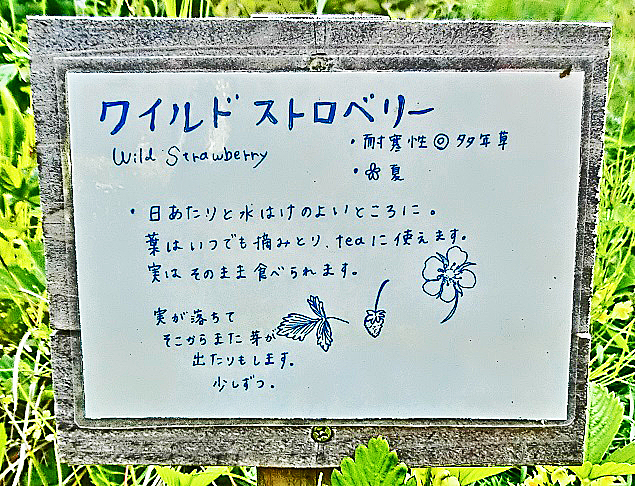 ワイルドストロベリー
Wild Strawberry
・耐寒性◎多年草
・❀夏
・日あたりと水はけのよいところに。
葉はいつでも摘みとり、teaに使えます。
実はそのまま食べられます。
実が落ちて
そこからまた芽が
出たりもします。
少しずつ。